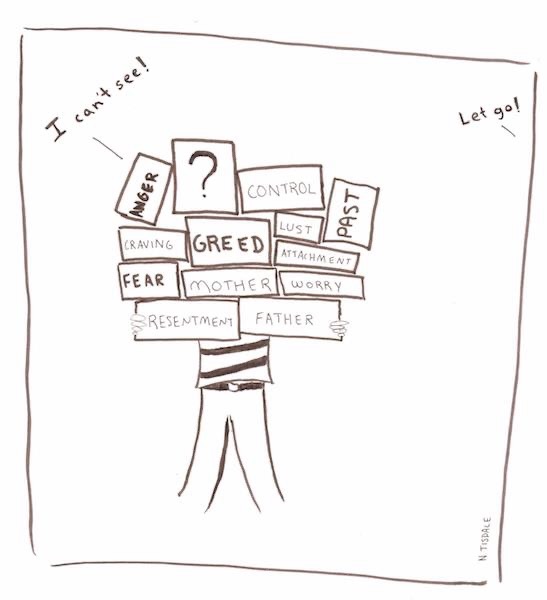 I can't see!
Let go!
ANGER
?
CONTROL
PAST
LUST
CRAVING
GREED
ATTACHMENT
FEAR
MOTHER
WORRY
RESENTMENT
FATHER
N TISDALE